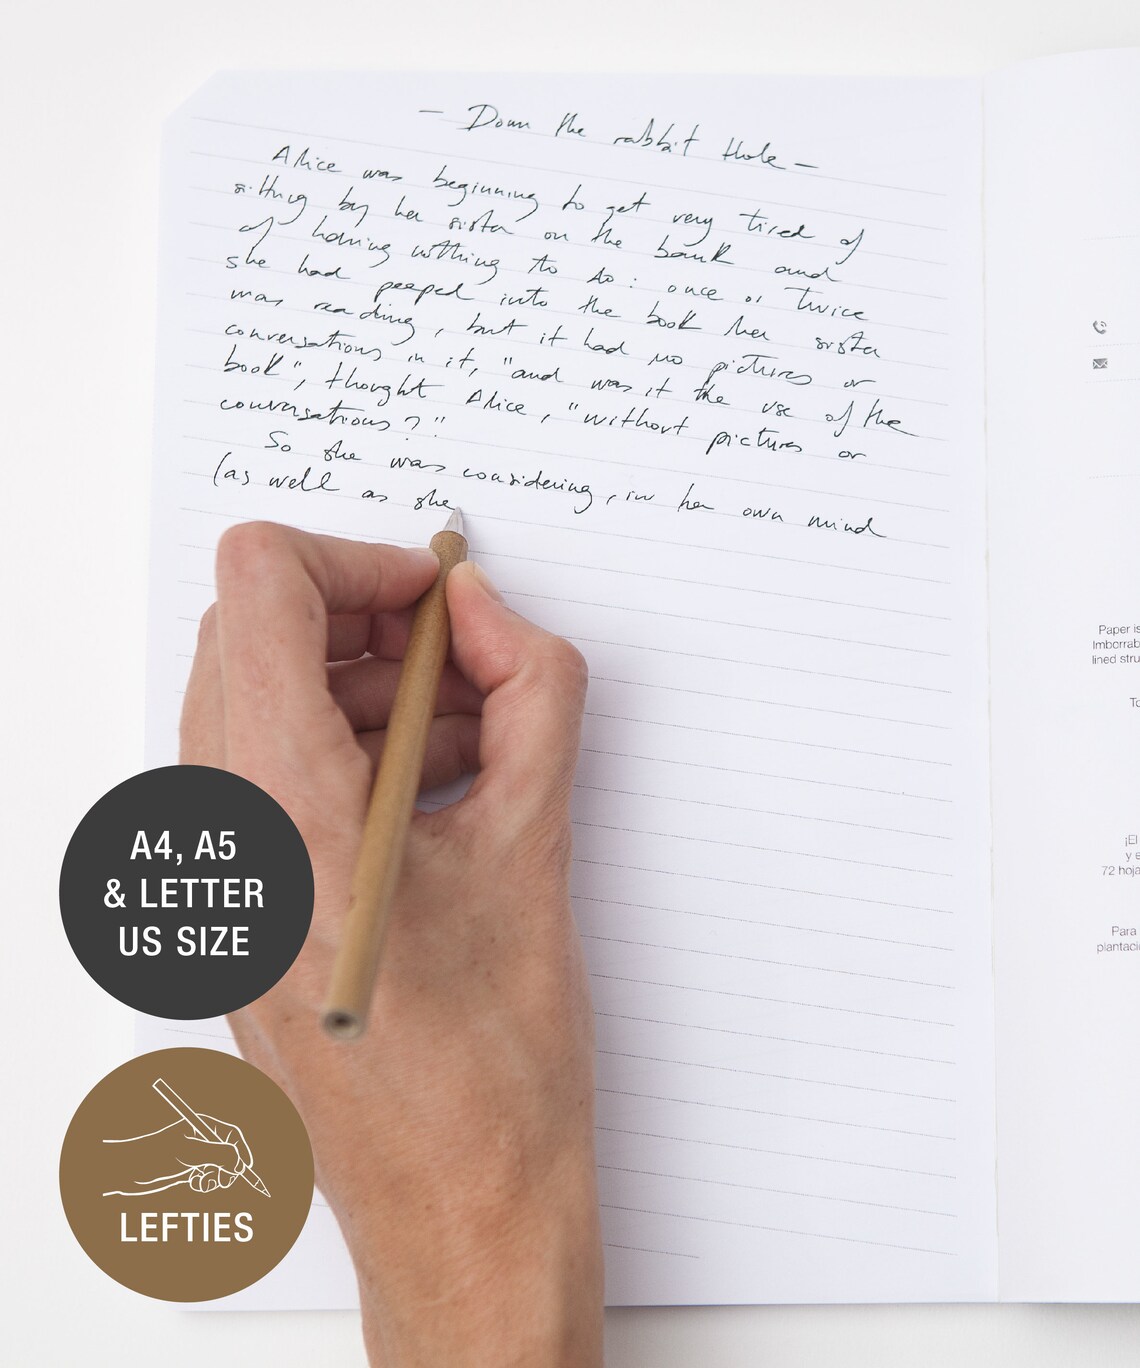 — Down the rabbit Hole —
Alice was beginning to get very tired of
sitting by her sister on the bank and
of having nothing to do: once or twice
she had peeped into the book her sister
was reading, but it had no pictures or
conversations in it, "and was it the use of the
book", thought Alice, "without pictures or
conversations?"
So she was considering, in her own mind
(as well as she
Paper is
lined stru
To
¡El
y e
72 hoja
Para
plantaci
A4, A5
& LETTER
US SIZE
LEFTIES